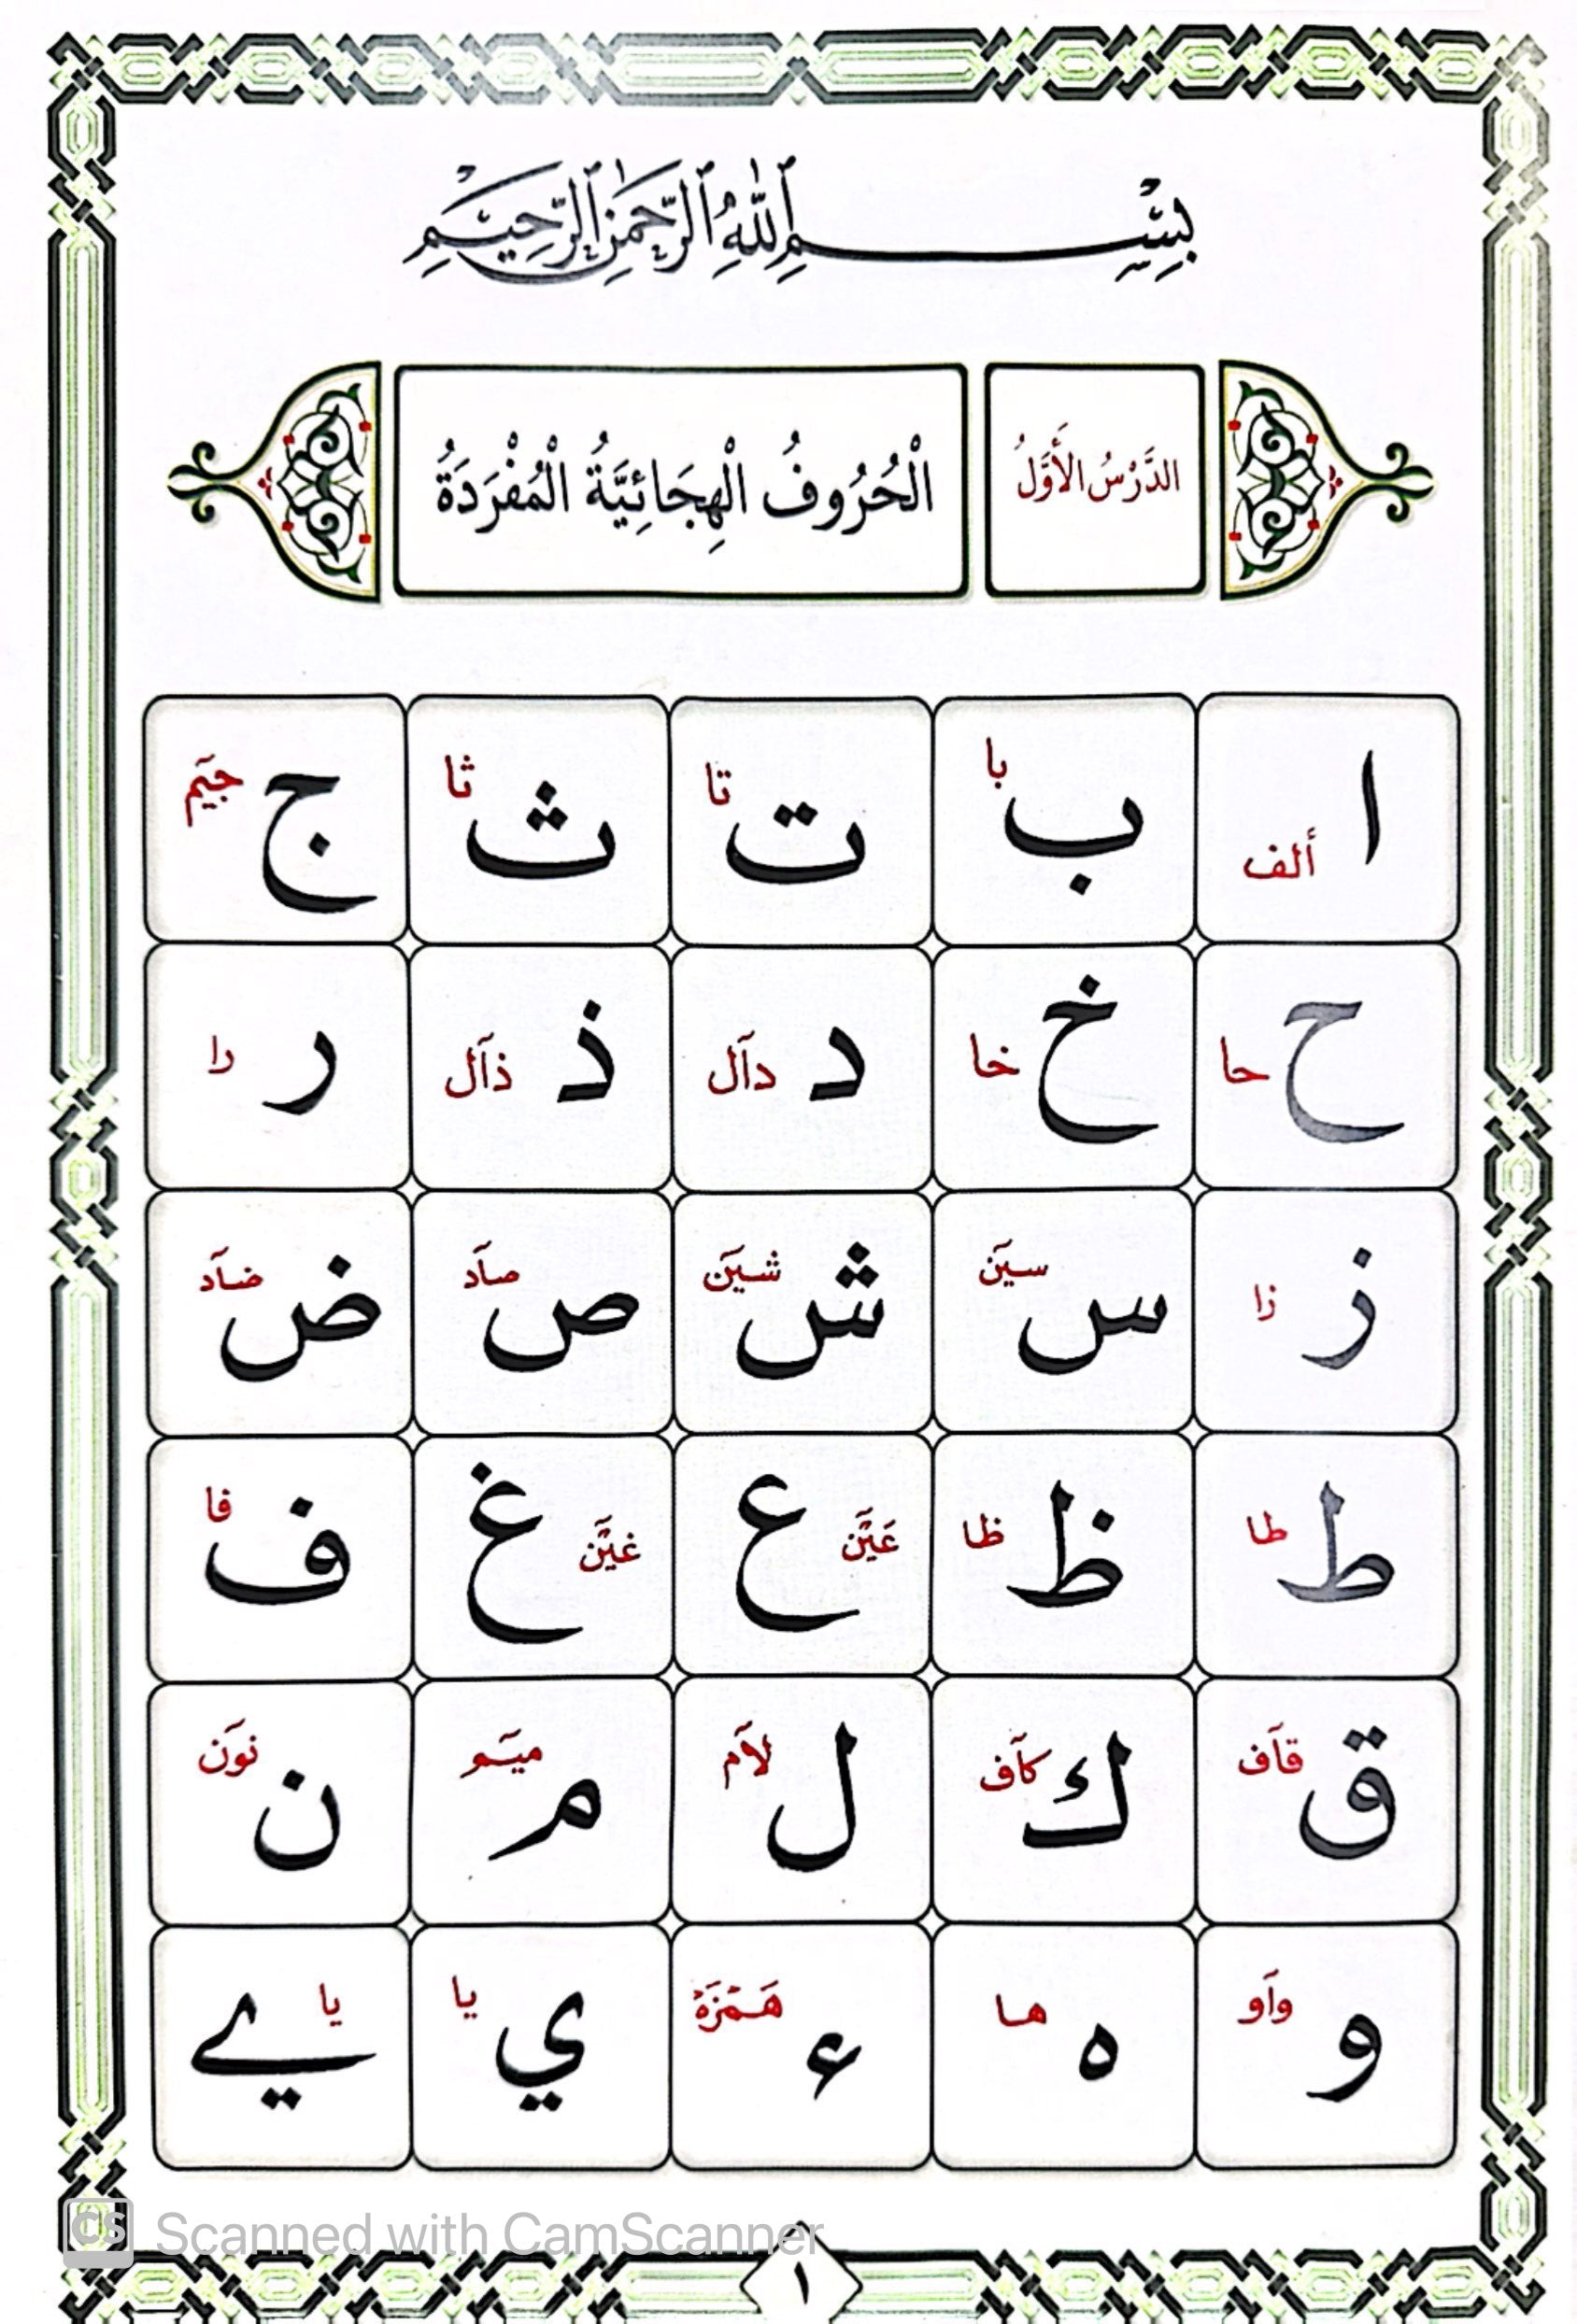 بِسْمِ ٱللَّهِ ٱلرَّحْمَٰنِ ٱلرَّحِيمِ
الدَّرْسُ الْأَوَّلُ
الْحُرُوفُ الْهِجَائِيَّةُ الْمُفْرَدَةُ
ا ألف ب با ت تا ث ثا ج جيٓم
ح حا خ خا د دآل ذ ذآل ر را
ز زا س سيٓن ش شيٓن ص صآد ض ضآد
ط طا ظ ظا ع عَيٓن غ غيٓن ف فا
ق قآف ك كآف ل لآم م ميٓم ن نوٓن
و وآو ه ها ء هَمْزَهْ ي يا ے يا
Scanned with CamScanner
CS
١